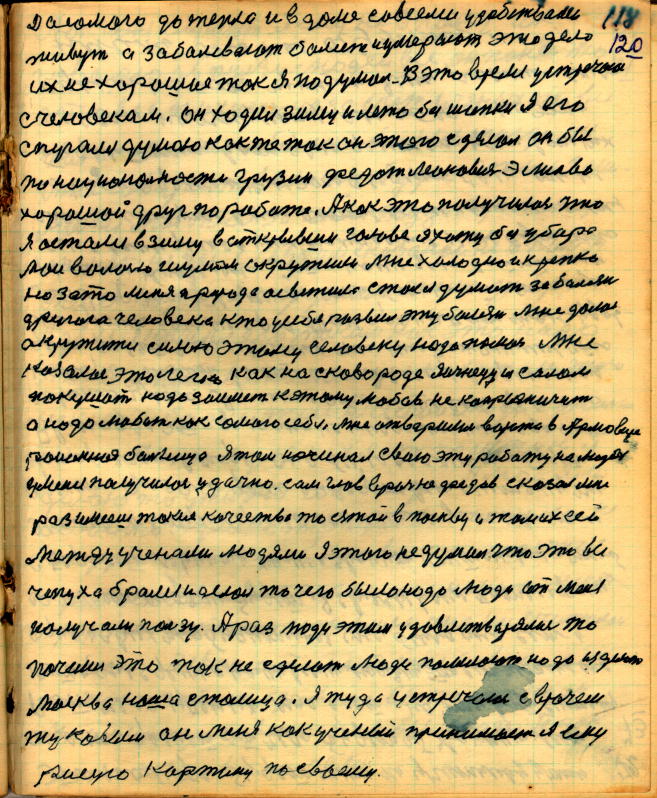 118
120
Даломого до тепла и в доме совсеми удобствами
живут а забалевают болеют и умерают это дело
их не хорошые так я подумал. В это время устречаюс
с человекам. он ходил зиму и лето биз шапки Я его
спугали думаю как та так он этого сделал он был
по национальности грузин федот леонович
хорошой друг по работе. А как это получилос что
Я остался в зиму в открывшим голове я хожу
мои волосы шумом окружили мне холодно и крепко
но за то меня природа осветила стал я думать забалели
другога человека кто у себя развил эту болезн мне далос
окружити силою этому человеку надо помоч мне
казалос это легко как на сковороде яичницу и салом
покушат надо займет к этому любов не капрызничит
а надо любит как самого себя. мне отварили варта в Армавире
районная балница Я там начинал свою эту работу на людях
у меня получилос удачно. сам глав врач недедов сказал мне
раз имееш такия качества то езжай в москву и там их сей
между учеными людями Я этого не думал что это все
чепуха брался и делал то чего было надо люди от меня
получали ползу. А раз люди этим удовлетваряли то
почему это так не сделат люди полюбют надо ездить
Москва наша столица. Я туда устречаюс с врачем
жуковым он меня как ученый принимает Я ему
рисую картину по своему.